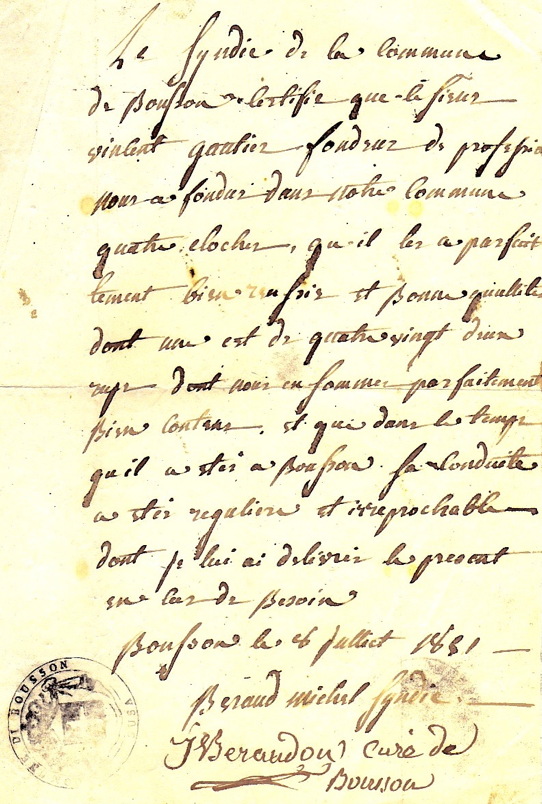 Le Syndic de la Commune
de Bousson Certifie que le sieur
vincent gautier fondeur de profession
nous a fondus dans notre Commune
quatre cloches, qu-il les a parfait
tement bien reussie et Bonne quallité
dont une est de quatre vingt deux
rups dont nous en sommes parfaitement
Bien Contens, et que dans le temps
qu il a stés a Bousson sa Conduite
a stés reguliere et irreprochable
dont je lui ai delivrés le present
en Cas de Besoin
Bousson le 26 juillet 1831
Beraud michel Syndic
J Beraudon Curé de
Bousson
DI BOUSSON